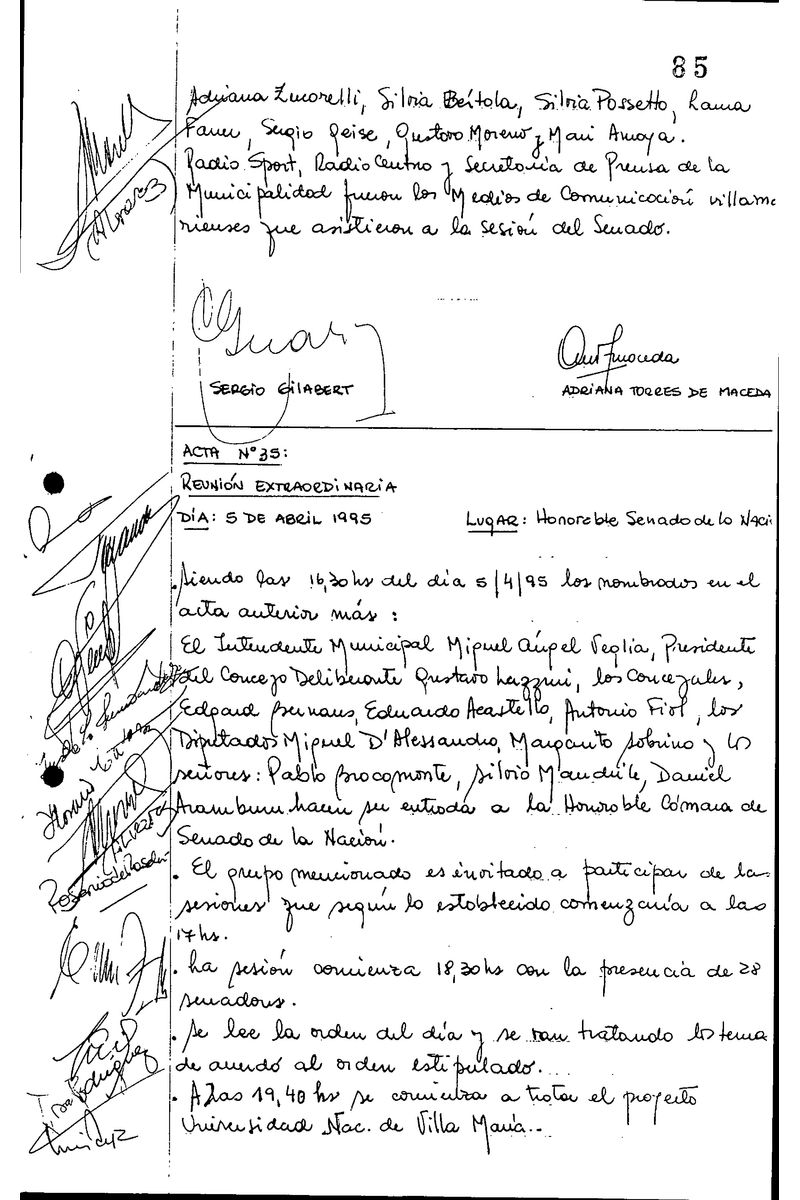 85
Adriana Zucorelli, Silvia Bértola, Silvia Possetto, Laura
Faner, Sergio Geise, Gustavo Moreno y Mari Amaya.
Radio Sport, Radio Centro y Secretaría de Prensa de la
Municipalidad fueron los Medios de Comunicación villama
rienses que asistieron a la sesión del Senado.
SERGIO GILABERT
ADRIANA TORRES DE MACEDA
ACTA N°35:
REUNIÓN EXTRAORDINARIA
DÍA: 5 DE ABRIL 1995 LUGAR: Honorable Senado de la Naci
.Siendo las 16,30 hs del día 5/4/95 los nombrados en el
acta anterior más:
El Intendente Municipal Miguel Ángel Veglia, Presidente
del Concejo Deliberante Gustavo, los Concejales,
Edgard Bernaus, Eduardo Acastello, Antonio Fiol, los
Diputados Miguel D'Alessandro, Margarita Sobrino y los
señores: Pablo Bocomonte, Silvio Mandrile, Daniel
Aramburu hacen su entrada a la Honorable Cámara de
Senado de la Nación.
. El grupo mencionado es invitado a participar de las
sesiones que según lo establecido comenzaría a las
17 hs.
. La sesión comienza 18,30 hs con la presencia de 28
senadores.
. Se lee la orden del día y se van tratando los tema
de acuerdo al orden estipulado...
. A las 19,40 hs se comienza a tratar el proyecto
Universidad Nac. de Villa María..